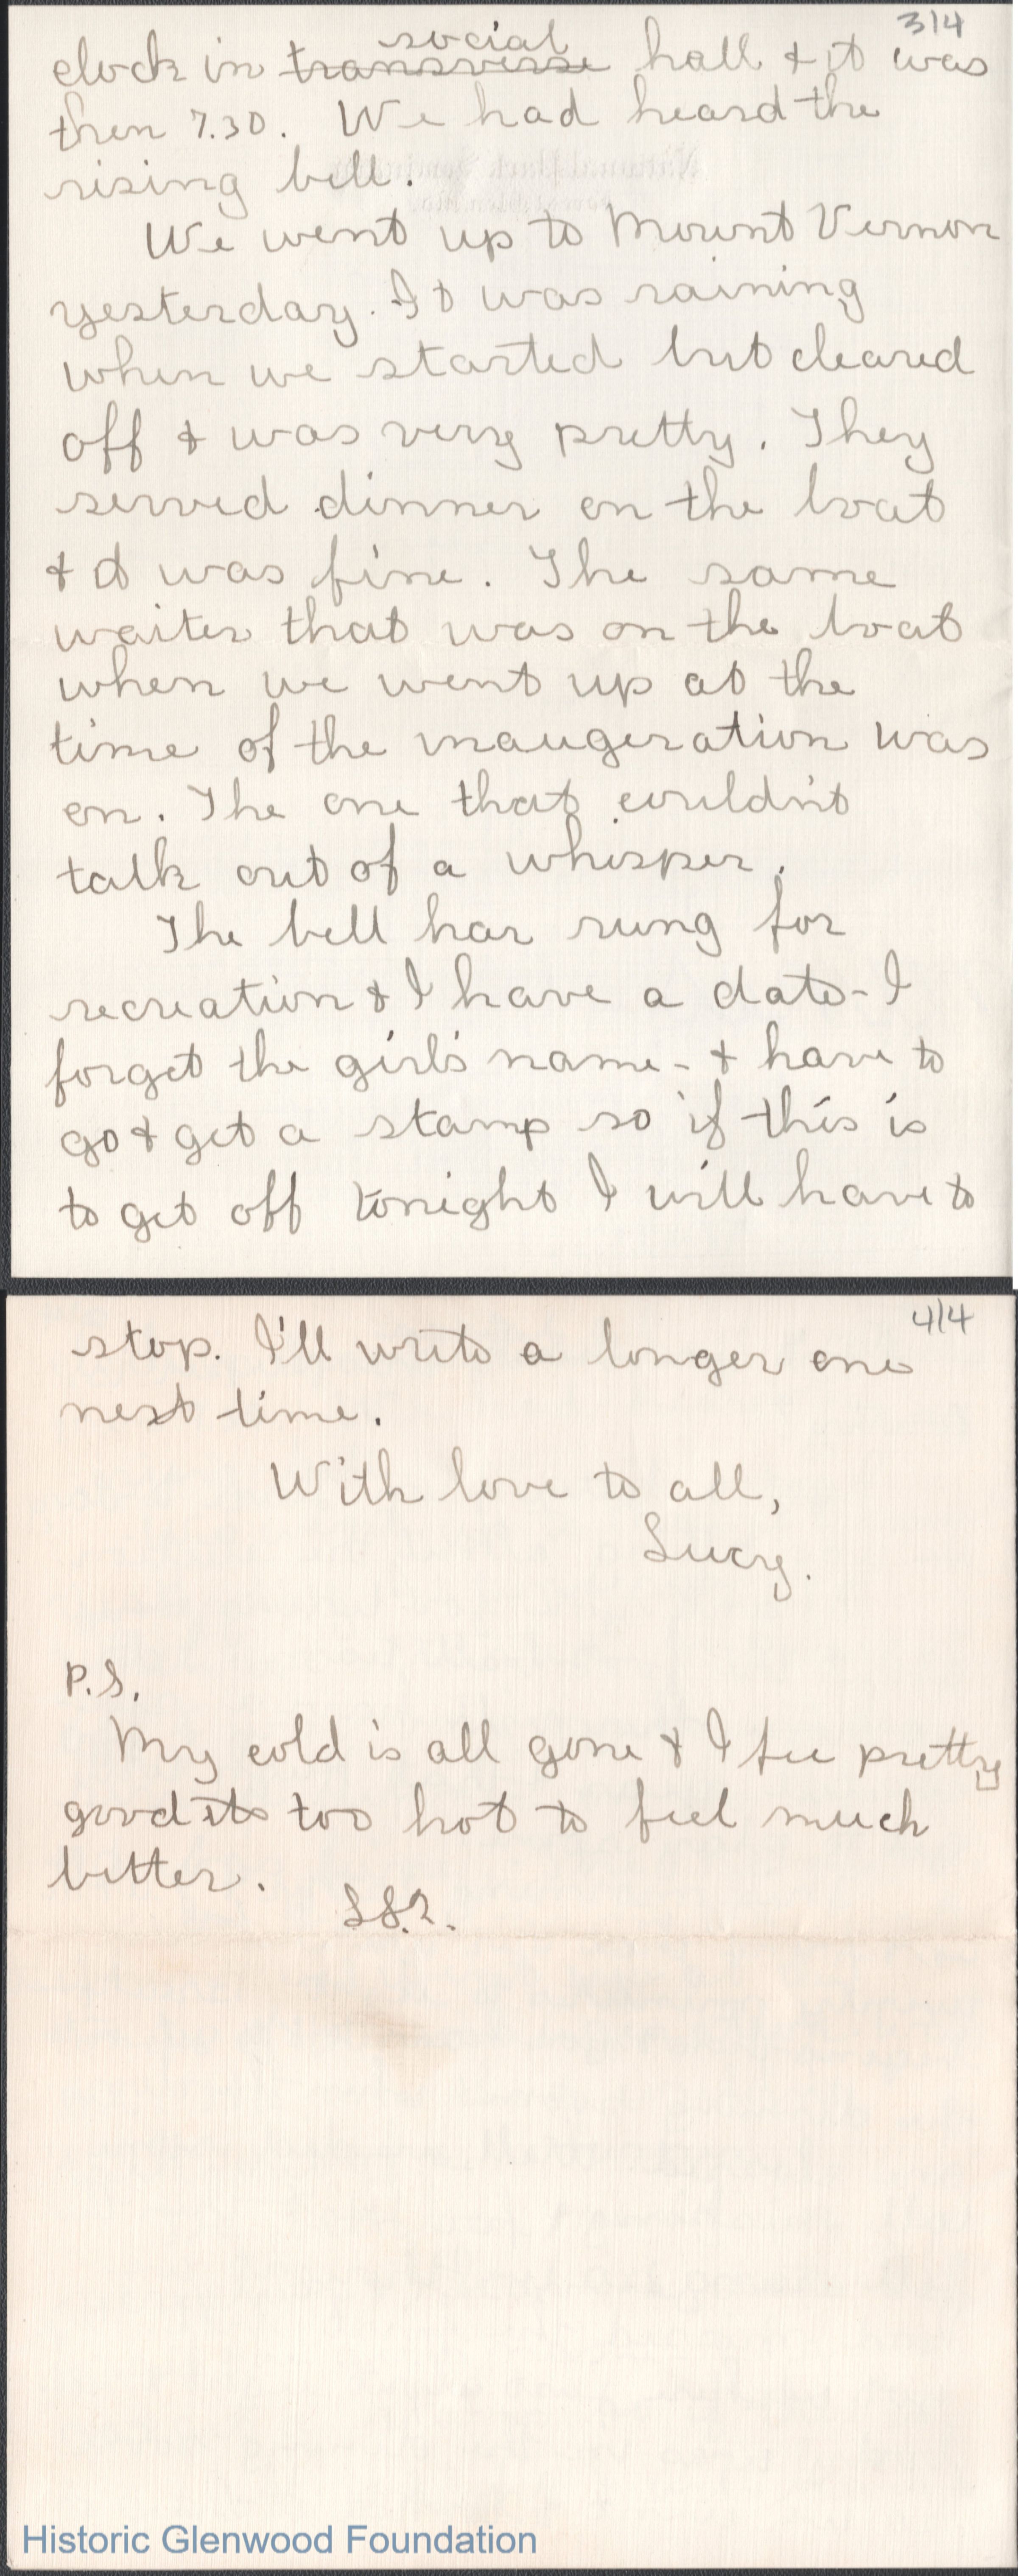 3/4
clock in ~~transverse~~ social hall & it was
then 7.30. We had heard the
rising bell.
We went up to Mount Vernon
yesterday. It was raining
when we started but cleared
off & was very pretty. They
served dinner on the boat
& it was fine. The same
waiter that was on the boat
when we went up at the
time of the inaugeration was
on. The one that couldn't
talk out of a whisper.
The bell har rung for
recreation & I have a date - I
forget the girl's name - & have to
go & get a stamp so if this is
to get off tonight I will have to
4/4
stop. I'll write a longer one
next time.
With love to all,
Lucy.
P.S.
My cold is all gone & I fee pretty
good its too hot to feel much
better.
Historic Glenwood Foundation